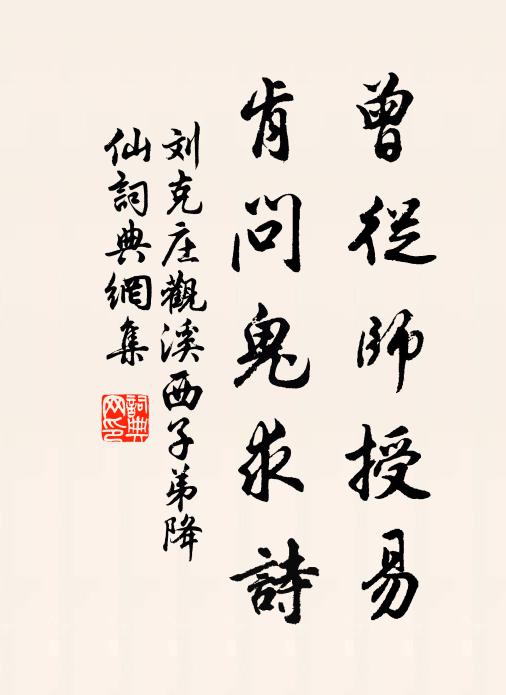 曾從師授易
肯問鬼求詩
刘克庄觀溪西子弟降
仙詞典網集
詞典网印